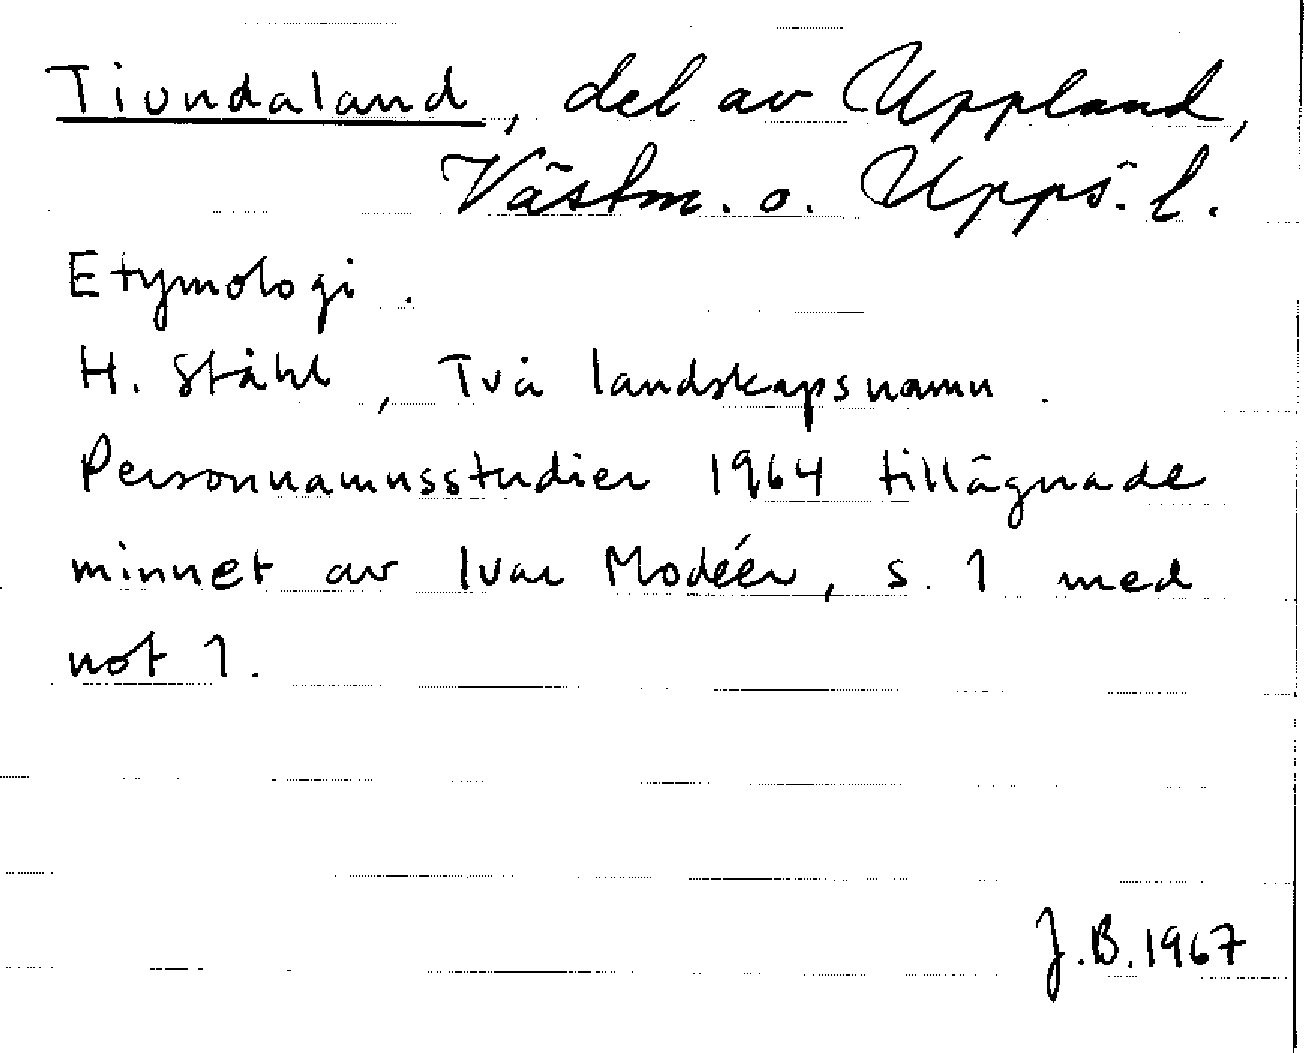 Tiundaland, del av Uppland,
Västm. o. Upps. l.
Etymologi.
H. Ståhl, Två landskapsnamn.
Personnamnsstudier 1964 tillägnade
minnet av Ivar Modéer, s. 1 med
not 1.
J.B. 1967